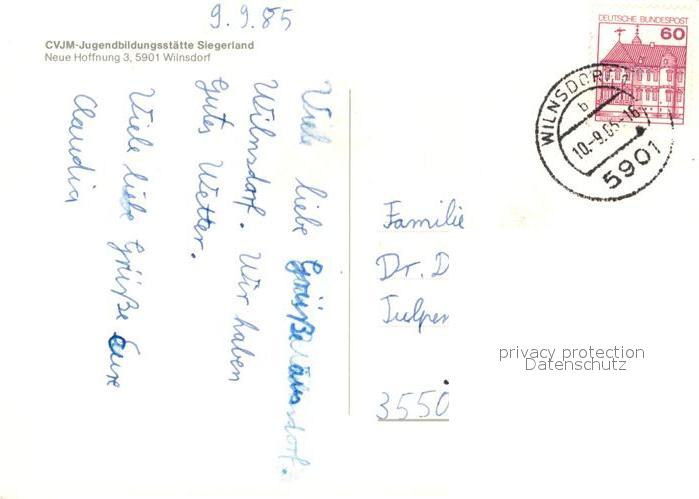 9.9.85
CVJM-Jugendbildungsstätte Siegerland
Neue Hoffnung 3, 5901 Wilnsdorf
Viele liebe Grüße aus
Wilnsdorf. Wir haben
Gutes Wetter.
Viele liebe Grüße Eure
Claudia
DEUTSCHE BUNDESPOST
60
WILNSDORF 1
b
10.-9.85-16
5901
Familie
Dr. D
Tulpen
3550
privacy protection
Datenschutz